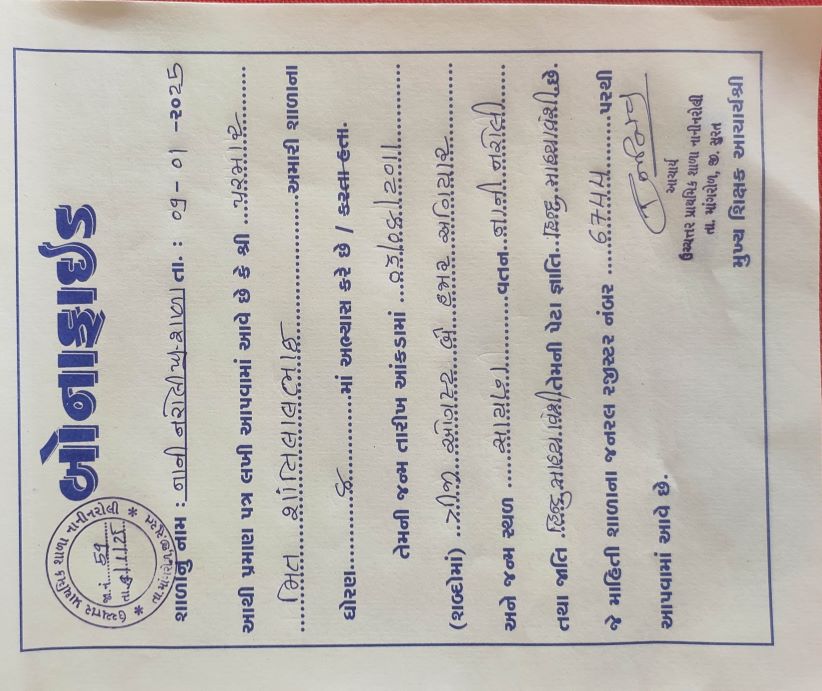 બોનાફાઈડ
ઉચ્ચત્તર પ્રાથમિક શાળા નાનીનરોલી
જા.નં. 59
તા. 9/1/25
તા.માંગરોળ, જી.સુરત
શાળાનું નામ : નાની નરોલી પ્રા. શાળા તા. : 09 - 01 - 2025
આથી પ્રમાણ પત્ર લખી આપવામાં આવે છે કે શ્રી ...પરમાર...
...મિત શાંતિલાલભાઈ...અમારી શાળાના
ધોરણ...૮...માં અભ્યાસ કરે છે / કરતા હતા.
તેમની જન્મ તારીખ આંકડામાં ...03/08/2011...
(શબ્દોમાં) ...ત્રીજી ઓગસ્ટ બે હજાર અગિયાર...
અને જન્મ સ્થળ ...સાયણ...વતન...નાની નરોલી...
તથા જાતિ .હિન્દુ માહ્યાવંશી તેમની પેટા જ્ઞાતિ..હિન્દુ માહ્યાવંશી.છે.
જે માહિતી શાળાના જનરલ રજીસ્ટર નંબર ...6744...પરથી
આપવામાં આવે છે.
આચાર્ય
ઉચ્ચત્તર પ્રાથમિક શાળા નાનીનરોલી
તા. માંગરોળ, જી. સુરત
મુખ્ય શિક્ષક આચાર્યશ્રી